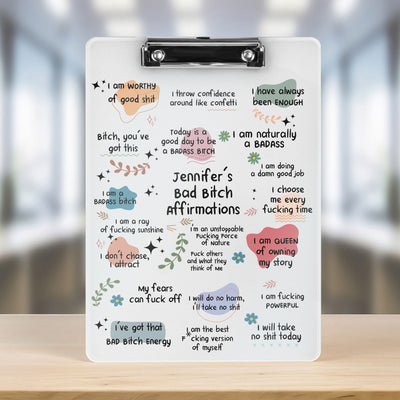 I am WORTHY
of good shit
I throw confidence
around like confetti
I have always
been ENOUGH
Bitch, you've
got this
Today is a
good day to be
a BADASS BITCH
I am naturally
a BADASS
I am doing
a damn good job
Jennifer's
Bad Bitch
Affirmations
I am a
BADASS BITCH
I choose
me every
fucking time
I am a ray
of fucking sunshine
I m an unstoppable
Fucking Force
of Nature
I am QUEEN
of owning
my story
I don't chase,
I attract
Fuck others
and what they
Think of Me
My fears
can fuck off
I will do no harm,
i'll take no shit
I am fucking
POWERFUL
i've got that
BAD BITCH ENERGY
I am the best
F*cking version
of myself
I will take
no shit today